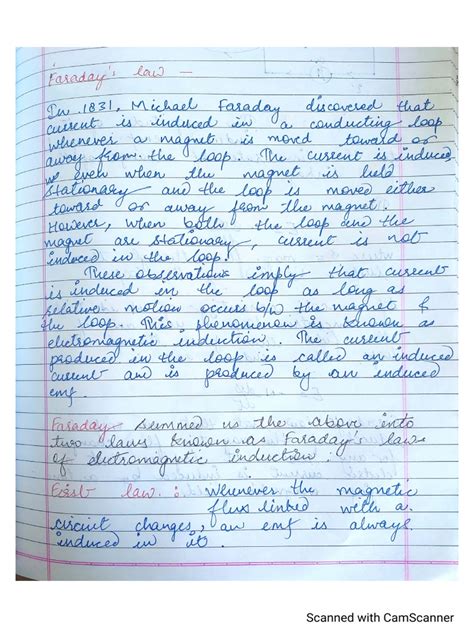 Faraday's law —
In 1831, Michael Faraday discovered that
current is induced in a conducting loop
whenever a magnet is moved toward or
away from the loop. The current is induced
even when the magnet is held
stationary and the loop is moved either
toward or away from the magnet.
However, when both the loop and the
magnet are stationary, current is not
induced in the loop.
These observations imply that current
is induced in the loop as long as
relative motion occurs b/w the magnet &
the loop. This phenomenon is known as
electromagnetic induction. The current
produced in the loop is called an induced
current and is produced by an induced
emf.
Faraday summed us the above into
two laws known as Faraday's laws
of electromagnetic induction.
First law : Whenever the magnetic
flux linked with a
circuit changes, an emf is always
induced in it.
Scanned with CamScanner